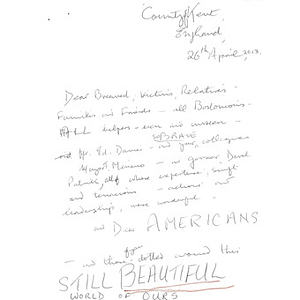 County of Kent
England,
26th April, 2013.
Dear Bereaved, Victims, Relatives -
Families and Friends - all Bostonians -
ALL helpers - even and unseen -
BRAVE
and Mr. Ed. Davis - and your colleagues
Mayor T. Menino - and governor Deval
Patrick, all of whose expertise, swift
and tenacious - actions and
leadership, were wonderful -
and Dear AMERICANS
- and those dotted around this
STILL BEAUTIFUL
WORLD OF OURS